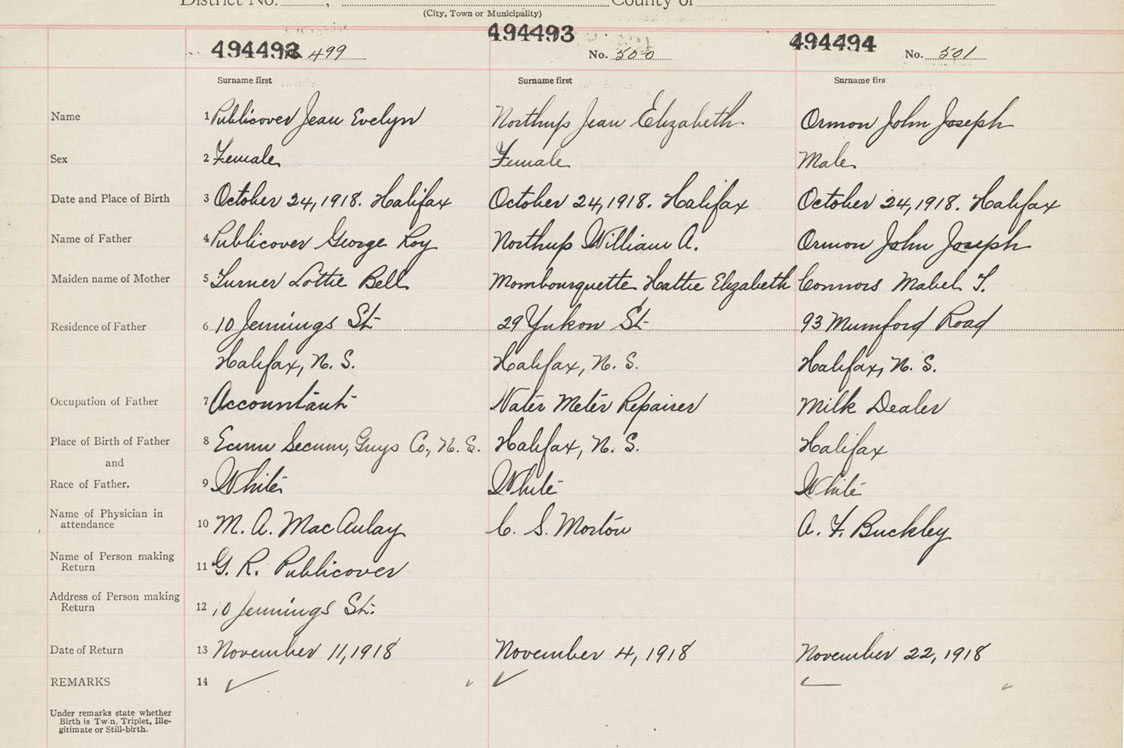 District No. , County of
(City, Town or Municipality)
494492 499 494493 No. 500 494494 No. 501
Surname first Surname first Surname firs
Name 1 Publicover Jean Evelyn Northup Jean Elizabeth Ormon John Joseph
Sex 2 Female Female Male
Date and Place of Birth 3 October 24, 1918. Halifax October 24, 1918. Halifax October 24, 1918. Halifax
Name of Father 4 Publicover George Roy Northup William A. Ormon John Joseph
Maiden name of Mother 5 Turner Lottie Bell Mombourquette Hattie Elizabeth Connors Mabel T.
Residence of Father 6 10 Jennings St. 29 Yukon St. 93 Mumford Road
Halifax, N. S. Halifax, N. S. Halifax, N. S.
Occupation of Father 7 Accountant Water Meter Repairer Milk Dealer
Place of Birth of Father 8 Ecum Secum, Guys Co., N. S. Halifax, N. S. Halifax
and
Race of Father. 9 White White White
Name of Physician in attendance 10 M. A. MacAulay C. S. Morton A. F. Buckley
Name of Person making Return 11 G. R. Publicover
Address of Person making Return 12 10 Jennings St.
Date of Return 13 November 11, 1918 November 4, 1918 November 22, 1918
REMARKS 14
Under remarks state whether
Birth is Twn, Triplet, Ille-
gitimate or Still-birth.